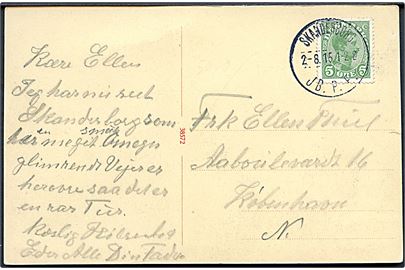 Kære Ellen
Jeg har nu seet
Skanderborg som
har en meget smuk Omegn
glimrende Vejr er
herovre saa det er
en rar Tur.
Kærlig Hilsen
Eder Alle Din Fader
38572
SKANDERBORG
2-8.15.
JB. P. E.
5 ØRE 5
Frk Ellen
Aaboulevardt 16
København
N.